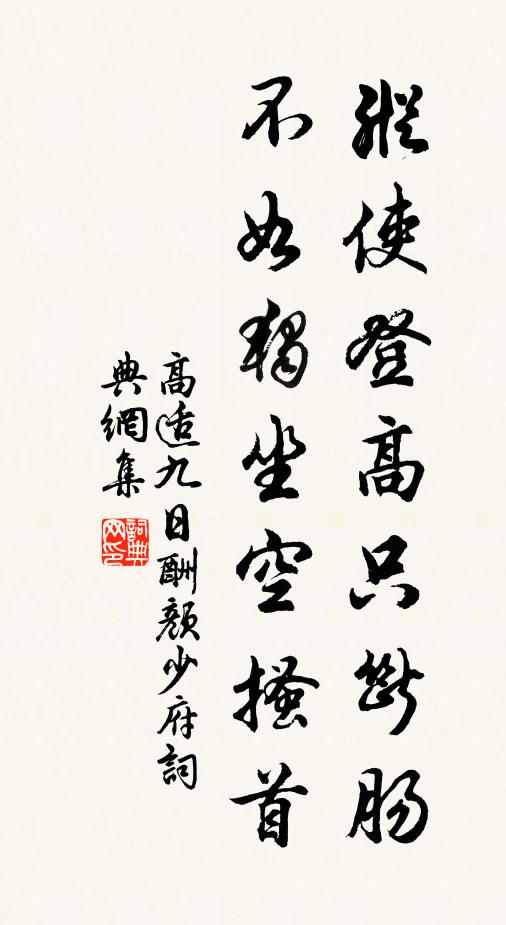 縱使登高只斷腸
不如獨坐空搔首
高適九日酬顏少府詞
典網集
詞典網印